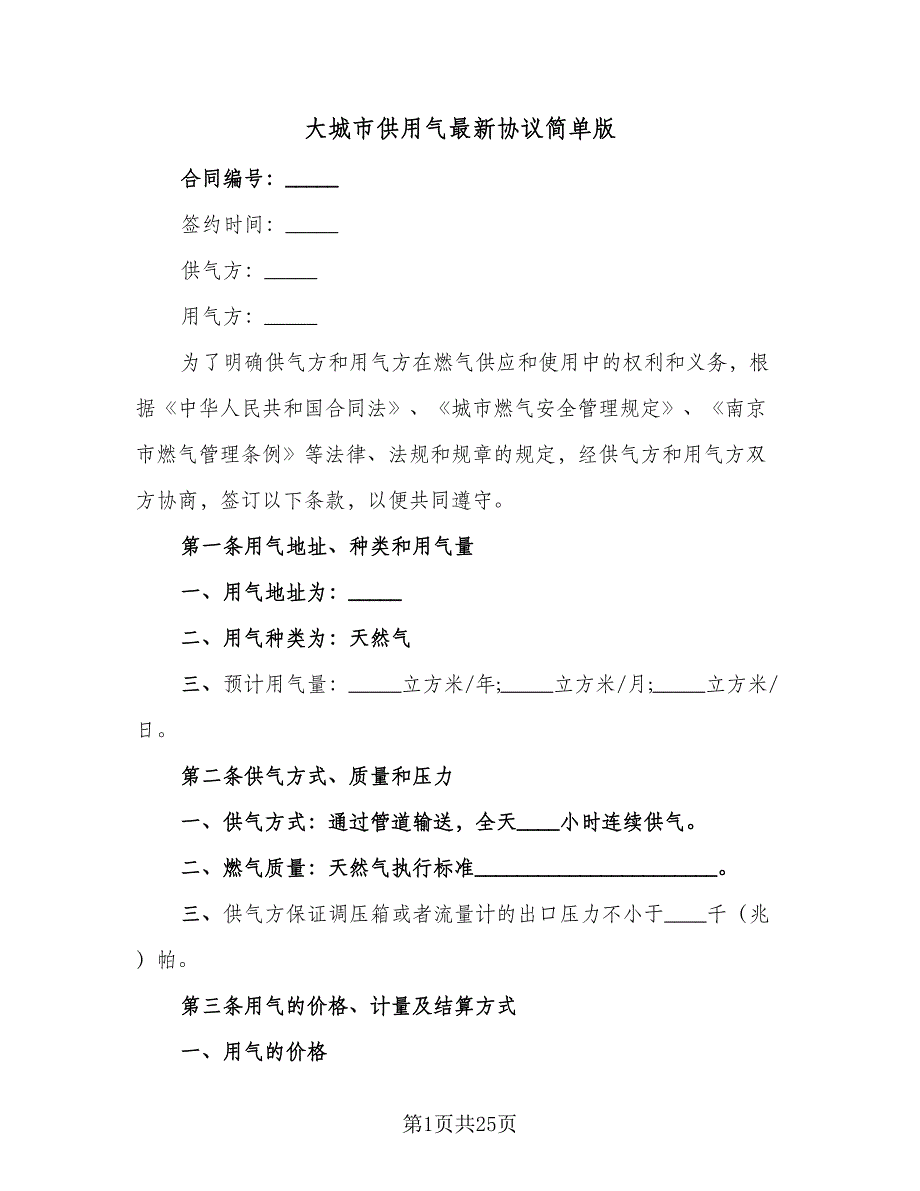 大城市供用气最新协议简单版
合同编号：_____
签约时间：_____
供气方：_____
用气方：_____
为了明确供气方和用气方在燃气供应和使用中的权利和义务，根
据《中华人民共和国合同法》、《城市燃气安全管理规定》、《南京
市燃气管理条例》等法律、法规和规章的规定，经供气方和用气方双
方协商，签订以下条款，以便共同遵守。
第一条用气地址、种类和用气量
一、用气地址为：_____
二、用气种类为：天然气
三、预计用气量：_____立方米/年;_____立方米/月;_____立方米/
日。
第二条供气方式、质量和压力
一、供气方式：通过管道输送，全天____小时连续供气。
二、燃气质量：天然气执行标准_______________________。
三、供气方保证调压箱或者流量计的出口压力不小于____千（兆
）帕。
第三条用气的价格、计量及结算方式
一、用气的价格
第1页共25页